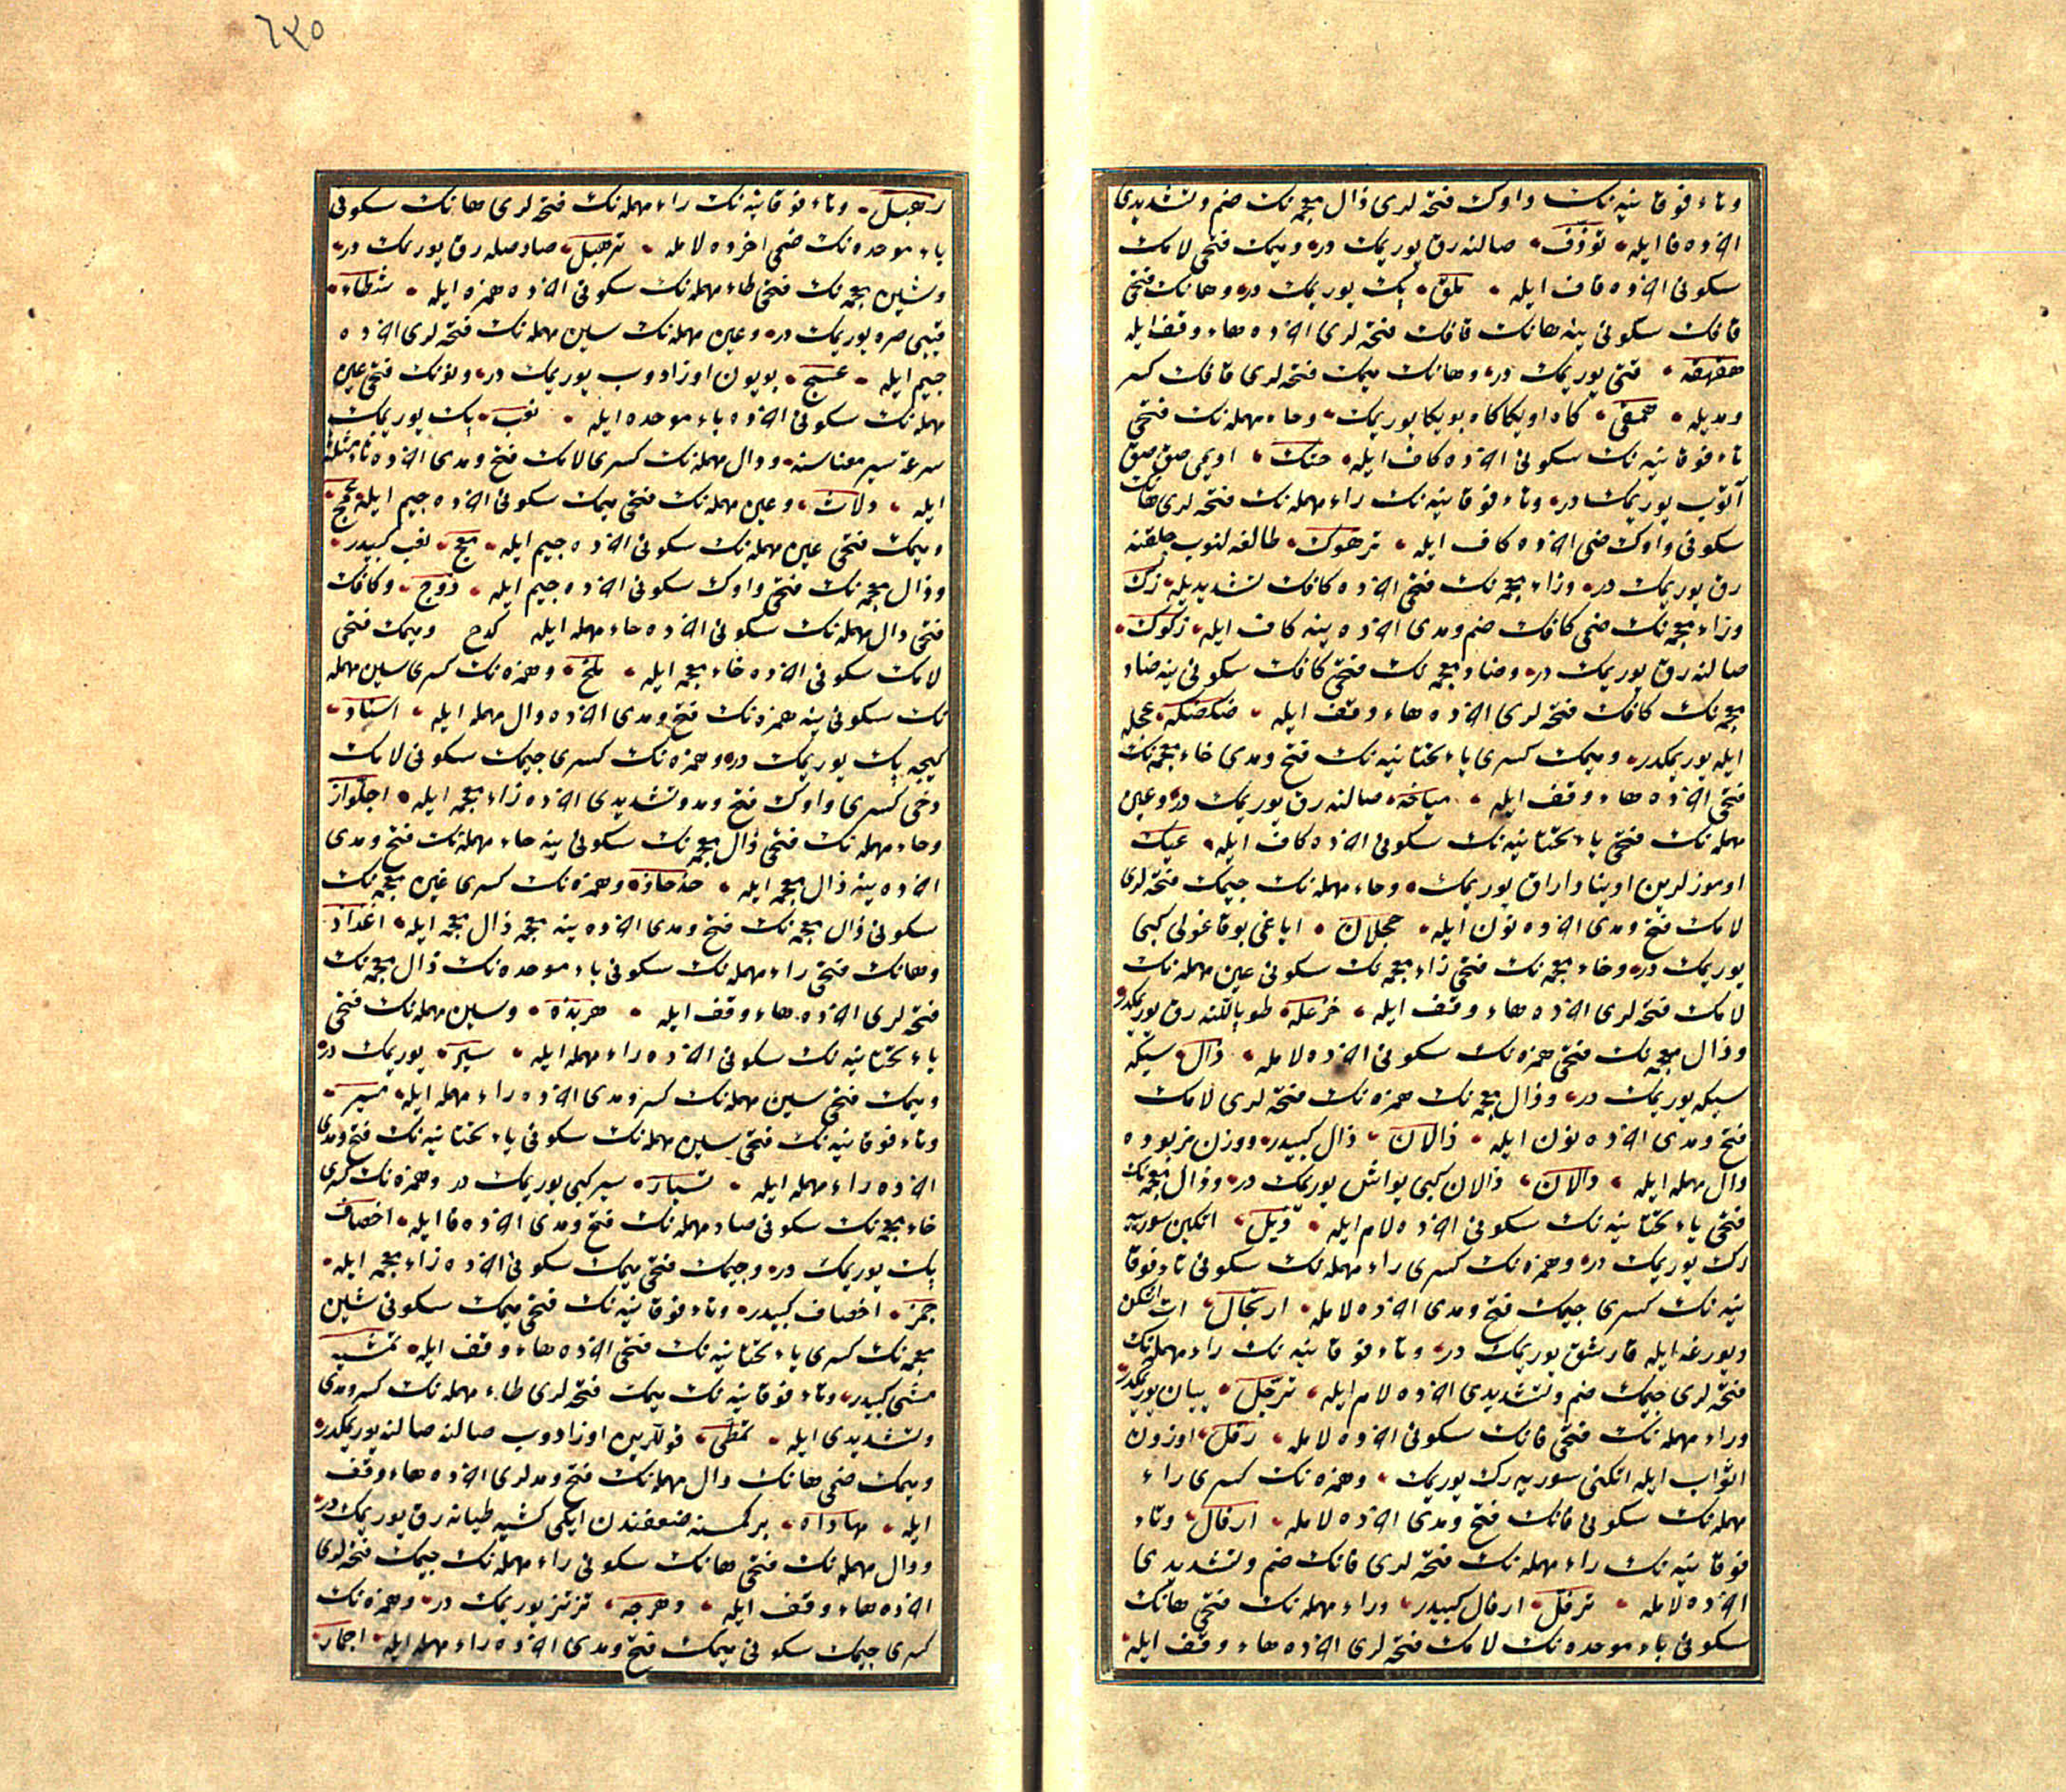 وتاء فوقانیه‌نك واوك فتحه‌لری ذال معجمه‌نك ضم وتشدیدی
اخرده فا ایله توذف صالنه‌رق یوریمك در ومیمك فتحی لامك
سكونی اخرده قاف ایله ملق پك یوریمك در وهانك فتحی
قافك سكونی ینه هانك قافك فتحه‌لری اخرده هاء وقف ایله
هقهقه قتی یوریمك در وهانك میمك فتحه‌لری قافك كسر
ومدیله همقی كاه اویكا كاه بویكا یوریمك وحاء مهمله‌نك فتحی
تاء فوقانیه‌نك سكونی اخرده كاف ایله حتك اویمی صق صق
آتوب یوریمك در وتاء فوقانیه‌نك راء مهمله‌نك فتحه‌لری هانك
سكونی واوك ضمی اخرده كاف ایله ترهوك طالغه‌لنوب چلقنه
رق یوریمك در وزاء معجمه‌نك فتحی اخرده كافك تشدیدیله زك
وزاء معجمه‌نك ضمی كافك ضم ومدی اخرده ینه كاف ایله زكوك
صالنه‌رق یوریمك در وضاد معجمه‌نك فتحی كافك سكونی ینه ضاد
معجمه‌نك كافك فتحه‌لری اخرده هاء وقف ایله ضكضكه عجله
ایله یوریمكدر ومیمك كسری یاء تحتانیه‌نك فتح ومدی خاء معجمه‌نك
فتحی اخرده هاء وقف ایله میاخه صالنه‌رق یوریمك در وعین
مهمله‌نك فتحی یاء تحتانیه‌نك سكونی اخرده كاف ایله عیك
اوموزلرین اویناداراق یوریمك وحاء مهمله‌نك جیمك فتحه‌لری
لامك فتح ومدی اخرده نون ایله حجلان ایاغی بوقاغولی كبی
یوریمك در وخاء معجمه‌نك فتحی زاء معجمه‌نك سكونی عین مهمله‌نك
لامك فتحه‌لری اخرده هاء وقف ایله خزعله طوپاللنه‌رق یوریمكدر
وذال معجمه‌نك فتحی همزه‌نك سكونی اخرده لامله ذأل سیكه
سیكه یوریمك در وذال معجمه‌نك همزه‌نك فتحه‌لری لامك
فتح ومدی اخرده نون ایله ذألان ذأل كبیدر ووزن مزبوده
دال مهمله ایله دألان ذألان كبی یواش یوریمك در وذال معجمه‌نك
فتحی یاء تحتانیه‌نك سكونی اخرده لام ایله ذیل اتكین سوریه
رك یوریمك در وهمزه‌نك كسری راء مهمله‌نك سكونی تاء فوقا
نیه‌نك كسری جیمك فتح ومدی اخرده لامله ارتجال ات اشكن
ویورغه ایله قارشق یوریمك در وتاء فوقانیه‌نك راء مهمله‌نك
فتحه‌لری جیمك ضم وتشدیدی اخرده لام ایله ترجل یبان یوریمكدر
وراء مهمله‌نك فتحی فانك سكونی اخرده لامله رفل اوزون
اثواب ایله اتكنی سوریه‌رك یوریمك وهمزه‌نك كسری راء
مهمله‌نك سكونی فانك فتح ومدی اخرده لامله ارفال وتاء
فوقانیه‌نك راء مهمله‌نك فتحه‌لری فانك ضم وتشدیدی
اخرده لامله ترفل ارفال كبیدر وراء مهمله‌نك فتحی هانك
سكونی باء موحده‌نك لامك فتحه‌لری اخرده هاء وقف ایله
٦٤٥
رهبل وتاء فوقانیه‌نك راء مهمله‌نك فتحه‌لری هانك سكونی
باء موحده‌نك ضمی اخرده لامله ترهبل صارصله‌رق یوریمك در
وشین معجمه‌نك فتحی طاء مهمله‌نك سكونی اخرده همزه ایله شطاء
یوریمك در وعین مهمله‌نك سین مهمله‌نك فتحه‌لری اخرده
جیم ایله عسج بویون اوزادوب یوریمك در ونونك فتحی عین
مهمله‌نك سكونی اخرده باء موحده ایله نعب پك یوریمك
سرعة سیر معناسنه ودال مهمله‌نك كسری لامك فتح ومدی اخرده ثاء مثلثه
ایله دلاث وعین مهمله‌نك فتحی میمك سكونی اخرده جیم ایله عمج
ومیمك فتحی عین مهمله‌نك سكونی اخرده جیم ایله معج نعب كبیدر
وذال معجمه‌نك فتحی واوك سكونی اخرده جیم ایله ذوج وكافك
فتحی دال مهمله‌نك سكونی اخرده حاء مهمله ایله كدح ومیمك فتحی
لامك سكونی اخرده خاء معجمه ایله ملخ وهمزه‌نك كسری سین مهمله
نك سكونی ینه همزه‌نك فتح ومدی اخرده دال مهمله ایله اسئاد
كیجه پك یوریمك در وهمزه‌نك كسری جیمك سكونی لامك
دخی كسری واوك فتح ومد وتشدیدی اخرده زاء معجمه ایله اجلواز
وحاء مهمله‌نك فتحی ذال معجمه‌نك سكونی ینه حاء مهمله‌نك فتح ومدی
اخرده ینه ذال معجمه ایله حذحاذ وهمزه‌نك كسری غین معجمه‌نك
سكونی ذال معجمه‌نك فتح ومدی اخرده ینه معجمه ذال معجمه ایله اغذاذ
وهانك فتحی راء مهمله‌نك سكونی باء موحده‌نك ذال معجمه‌نك
فتحه‌لری اخرده هاء وقف ایله هربذه وسین مهمله‌نك فتحی
یاء تحتانیه‌نك سكونی اخرده راء مهمله ایله سیر یوریمك در
ومیمك فتحی سین مهمله‌نك كسر ومدی اخرده راء مهمله ایله مسیر
وتاء فوقانیه‌نك فتحی سین مهمله‌نك سكونی یاء تحتانیه‌نك فتح ومدی
اخرده راء مهمله ایله تسیار سیر كبی یوریمك در وهمزه‌نك كسری
خاء معجمه‌نك سكونی صاد مهمله‌نك فتح ومدی اخرده فا ایله اخصاف
پك یوریمك در وجیمك فتحی میمك سكونی اخرده زاء معجمه ایله
جمز اخصاف كبیدر وتاء فوقانیه‌نك فتحی میمك سكونی شین
معجمه‌نك كسری یاء تحتانیه‌نك فتحی اخرده هاء وقف ایله تمشیه
مشی كبیدر وتاء فوقانیه‌نك میمك فتحه‌لری طاء مهمله‌نك كسر ومدی
وتشدیدی ایله تمطی قوللرین اوزادوب صالنه صالنه یوریمكدر
ومیمك ضمی هانك دال مهمله‌نك فتح ومدلری اخرده هاء وقف
ایله مهاداه بر كمسنه ضعفندن ایكی كشیه طیانه‌رق یوریمك در
ودال مهمله‌نك فتحی هانك سكونی راء مهمله‌نك جیمك فتحه‌لری
اخرده هاء وقف ایله دهرجه تز تز یوریمك در وهمزه‌نك
كسری جیمك سكونی میمك فتح ومدی اخرده راء مهمله ایله اجمار